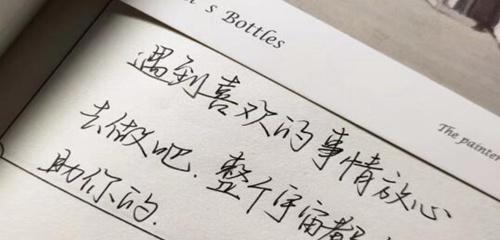 's Bottles
The painte
遇到喜欢的事情放心
去做吧.整个宇宙都
助你的.